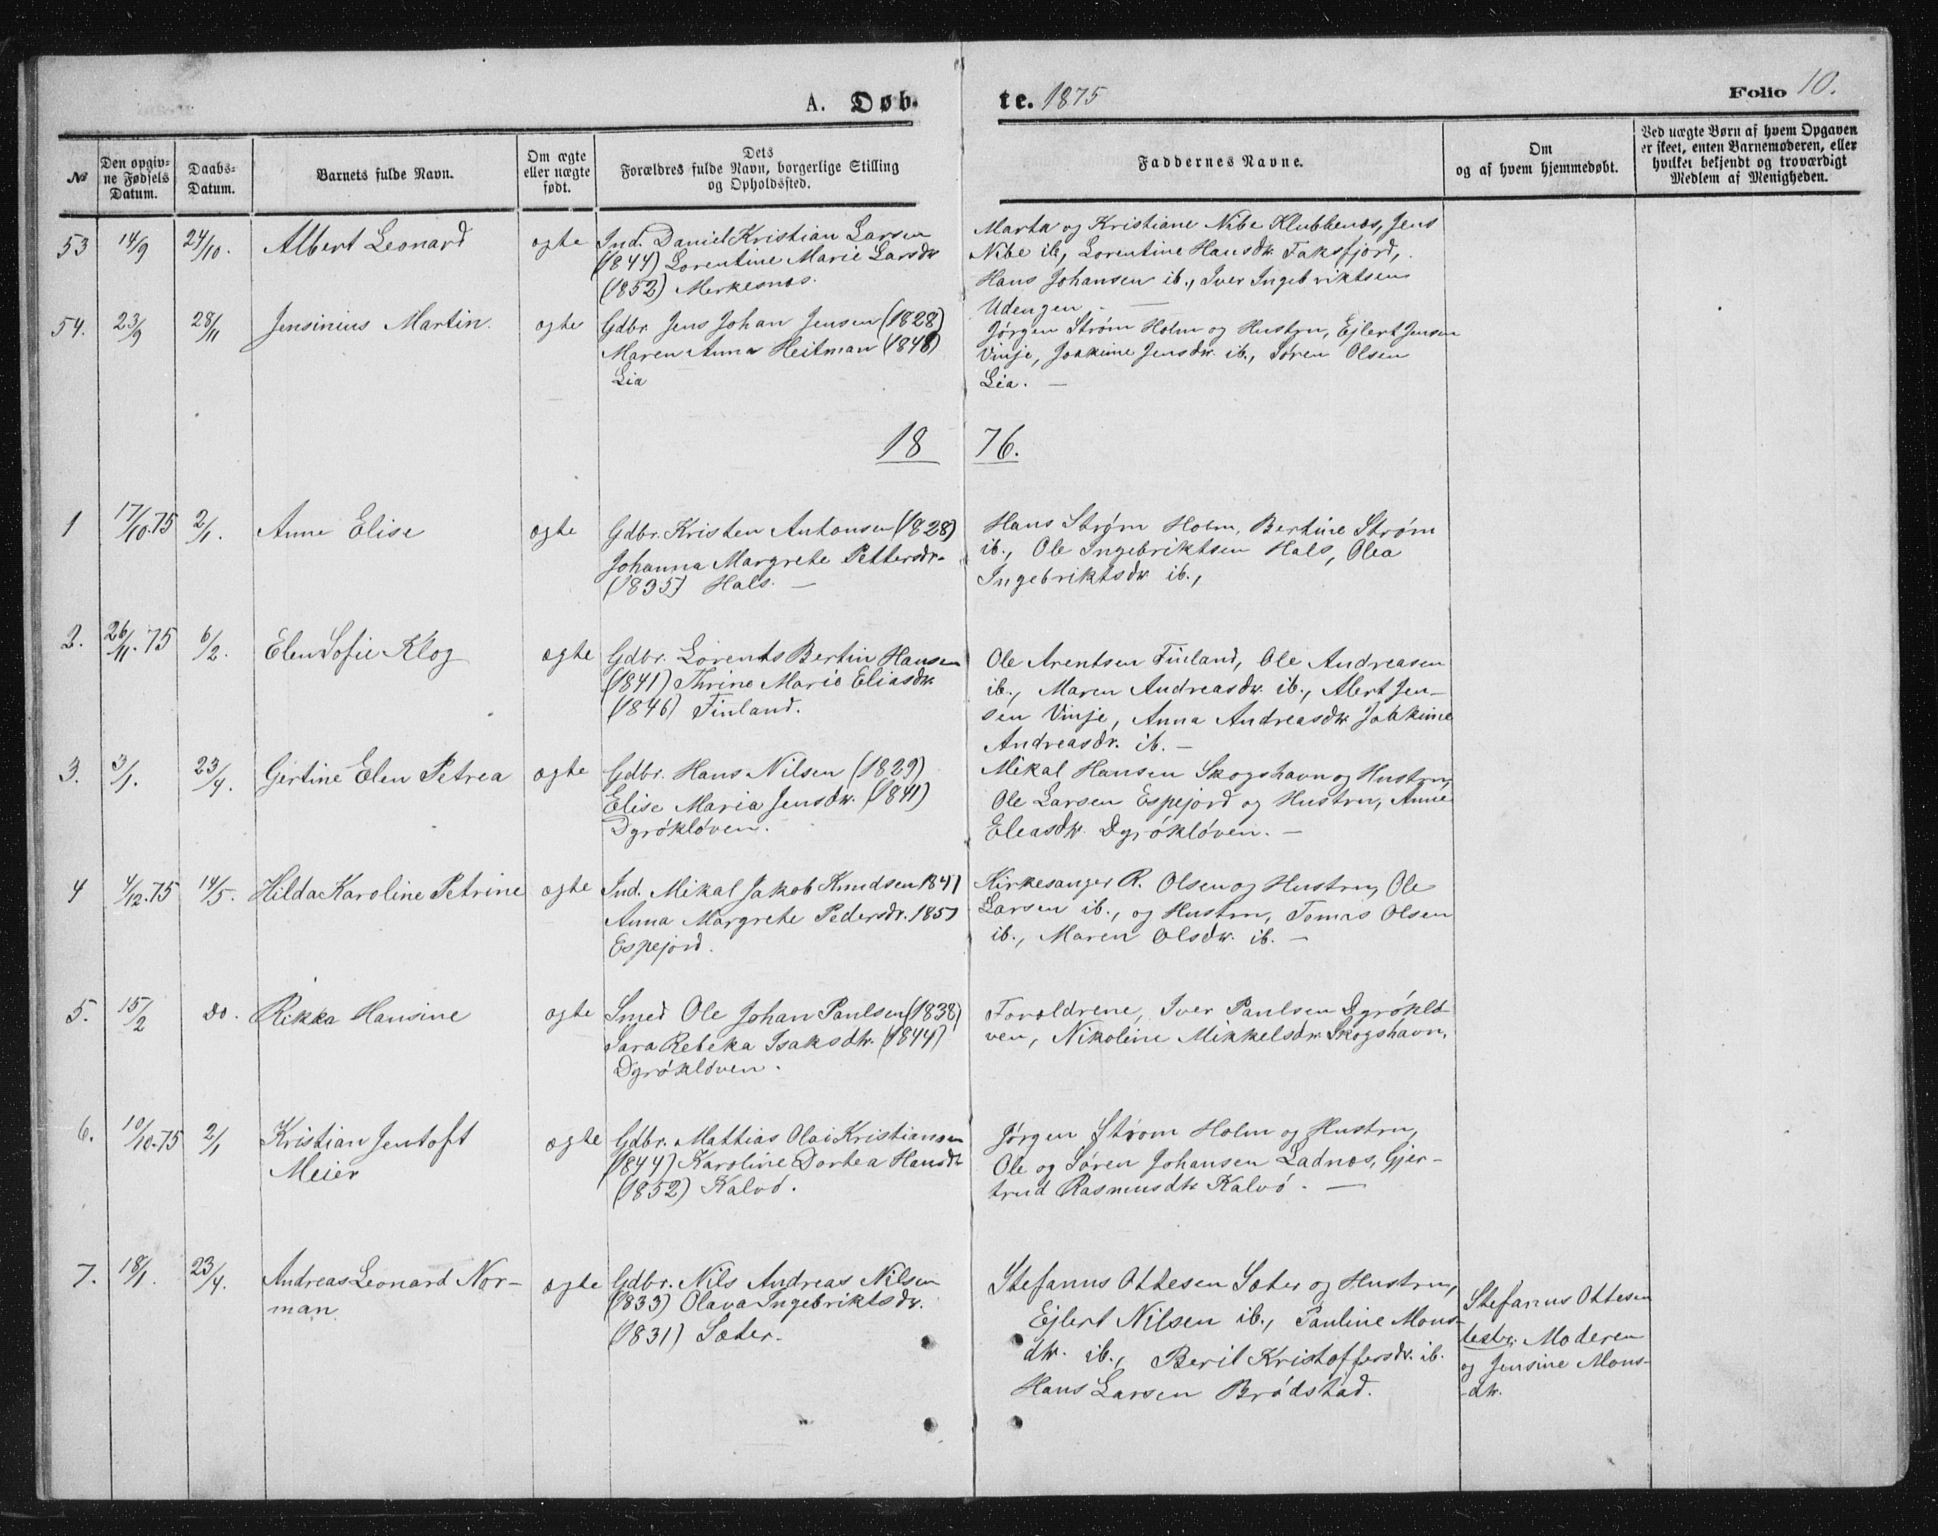 A. Døb- te. 1875 Folio 10.
№
Den opgiv-
ne Fødsels
Datum.
Daabs-
Datum.
Barnets fulde Navn.
Om ægte
eller uægte
født.
Dets
Forældres fulde Navn, borgerlige Stilling
og Opholdssted.
Faddernes Navne.
Om
og af hvem hjemmedøbt.
Ved uægte Børn af hvem Opgaven
er skeet, enten Barnemoderen, eller
hvilket bekjendt og troværdigt
Medlem af Menigheden.
53 14/9 24/10. Albert Leonard ægte
Ind. Daniel Kristian Larsen
(1844) Lorentine Marie Larsdtr
(1852) Merkesnæs.
Marta og Kristiane Nibe Klubbenæs, Jens
Nibe ib., Lorentine Hansdtr Faksfjord,
Hans Johansen ib., Iver Ingebriktsen
Udengen —
54. 23/9 28/11 Jensinius Martin. ægte
Gdbr. Jens Johan Jensen (1828)
Maren Anna Heitman (1848)
Lia
Jørgen Strøm Holm og Hustru, Ejlert Jensen
Vinje, Joakime Jensdtr. ib., Søren Olsen
Lia. —
18 76.
1 17/10.75 2/1. Anne Elise ægte
Gdbr. Kristen Antonsen (1828)
Johanna Margrete Pettersdr.
(1835) Hals. —
Hans Strøm Holm, Bertine Strøm
ib., Ole Ingebriktsen Hals, Olea
Ingebriktsdtr ib.,
2. 26/11.75 6/2. Elen Sofie Klog ægte
Gdbr. Lorents Bertin Hansen
(1841) Thrine Marie Eliasdtr.
(1846) Finland.
Ole Arentsen Finland, Ole Andreasen
ib., Maren Andreasdtr. ib., Alert Jen-
sen Vinje, Anna Andreasdtr Joakime
Andreasdr. ib. —
3. 3/1. 23/4. Gertine Elen Petrea ægte
Gdbr. Hans Nilsen (1829)
Elise Maria Jensdtr. (1841)
Dyrökløven.
Mikal Hansen Skogshavn og Hustru,
Ole Larsen Espejord og Hustru, Anne
Eleasdtr. Dyrökløven. —
4 4/12.75 14/5. Hilda Karoline Petrine ægte
Ind. Mikal Jakob Knudsen 1847
Anna Margrete Pedersdr. 1851
Espejord.
Kirkesanger R. Olsen og Hustru, Ole
Larsen ib., og Hustru, Tomas Olsen
ib., Maren Olsdtr. ib. —
5. 15/2 do. Rikka Hansine ægte
Smed Ole Johan Paulsen (1838)
Sara Rebeka Isaksdtr. (1844)
Dyrökløven.
Forældrene, Iver Paulsen Dyröklö-
ven, Nikoline Mikkelsdtr. Skogshavn.
6. 10/10.75 2/1 Kristian Jentoft
Meier ægte
Gdbr. Mattias Olai Kristiansen
(1844) Karoline Dortea Hansdtr
(1852) Kalvö.
Jørgen Strøm Holm og Hustru,
Ole og Søren Johansen Ladnæs, Gjer-
trud Rasmusdtr Kalvö. —
7. 18/1. 23/4. Andreas Leonard Nor-
man ægte
Gdbr. Nils Andreas Nilsen
(1833) Olava Ingebriktsdtr.
(1831) Sæter.
Stefanus Ottesen Sæter og Hustru,
Ejlert Nilsen ib., Pauline Mons-
dtr. ib., Beril Kristoffersdtr. ib.
Hans Larsen Brödstad.
Stefanus Ottesen
testr. Moderen
og Jensine Mons-
dtr.